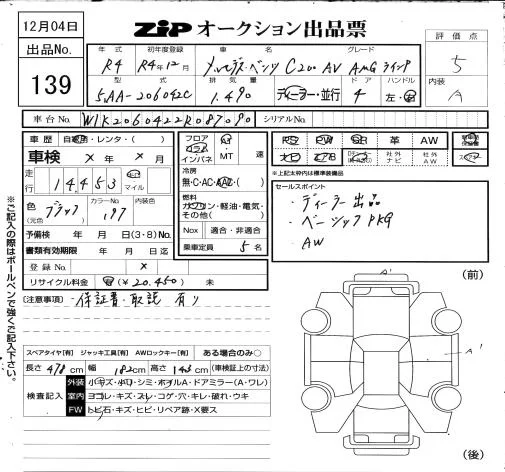 12月04日
ZIPオークション出品票
出品No.
139
年式 初年度登録 車名 グレード
R4 R4年12月 メルセデス・ベンツ C200 AV AMGライン
型式 排気量 ドア ハンドル
5AA-206042C 1,490 ディーラー・並行 4 左・右
評価点
5
内装
A
車台No. W1K2060422R087090 シリアルNo.
車歴 自家用・レンタ・( )
車検 × 年 × 月
走行 14,453 km マイル
色(元色) ブラック カラーNo. 197 内装色
予備検 年 月 日(3・8)No.
書類有効期限 年 月 日迄
登録No. ×
リサイクル料金 (¥20,450) 未
フロア AT
コラム
インパネ MT 速
冷房
無・C・AC・AAC・( )
燃料
ガソリン・軽油・電気・その他( )
Nox 適合・非適合
乗車定員 5名
PS PW SR 革 AW
ナビ エアB 社外ナビ 社外AW
※上記太枠内は標準装備品
セールスポイント
・ディーラー出品
・ベーシックPKG
・AW
(注意事項) ・保証書・取説 有り
※ご記入の際はボールペンで強くご記入下さい。
スペアタイヤ[有] ジャッキ工具[有] AWロックキー[有] ある場合のみ○
長さ 478cm 幅 182cm 高さ 143cm (車検証上の寸法)
検査記入
外装 小キズ・小凹・シミ・ホイルA・ドアミラー(A・ワレ)
室内 ヨゴレ・キズ・スレ・コゲ・穴・キレ・破れ・ウキ
FW トビ石・キズ・ヒビ・リペア跡・X要ス
(前)
A'
A'
(後)